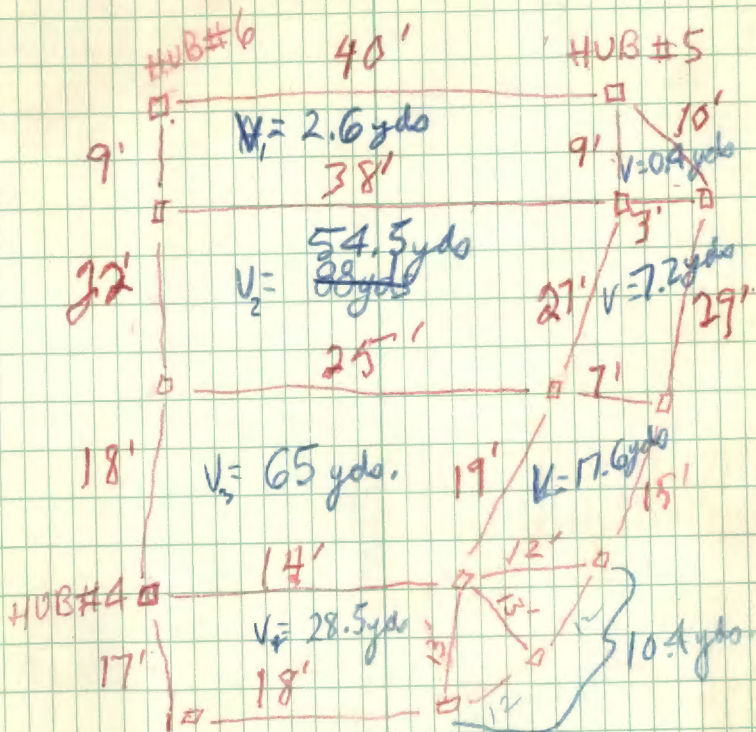 HUB #6
40'
HUB #5
V₁= 2.6 yds
9'
9'
10'
V=0.4 yds
38'
3'
54.5 yds
V₂= 88yds
27'
V=7.2 yds
29'
25'
7'
18'
V₃= 65 yds.
19'
V=17.6 yds
15'
14'
12'
HUB #4
V₄= 28.5 yds
10.4 yds
17'
18'
12